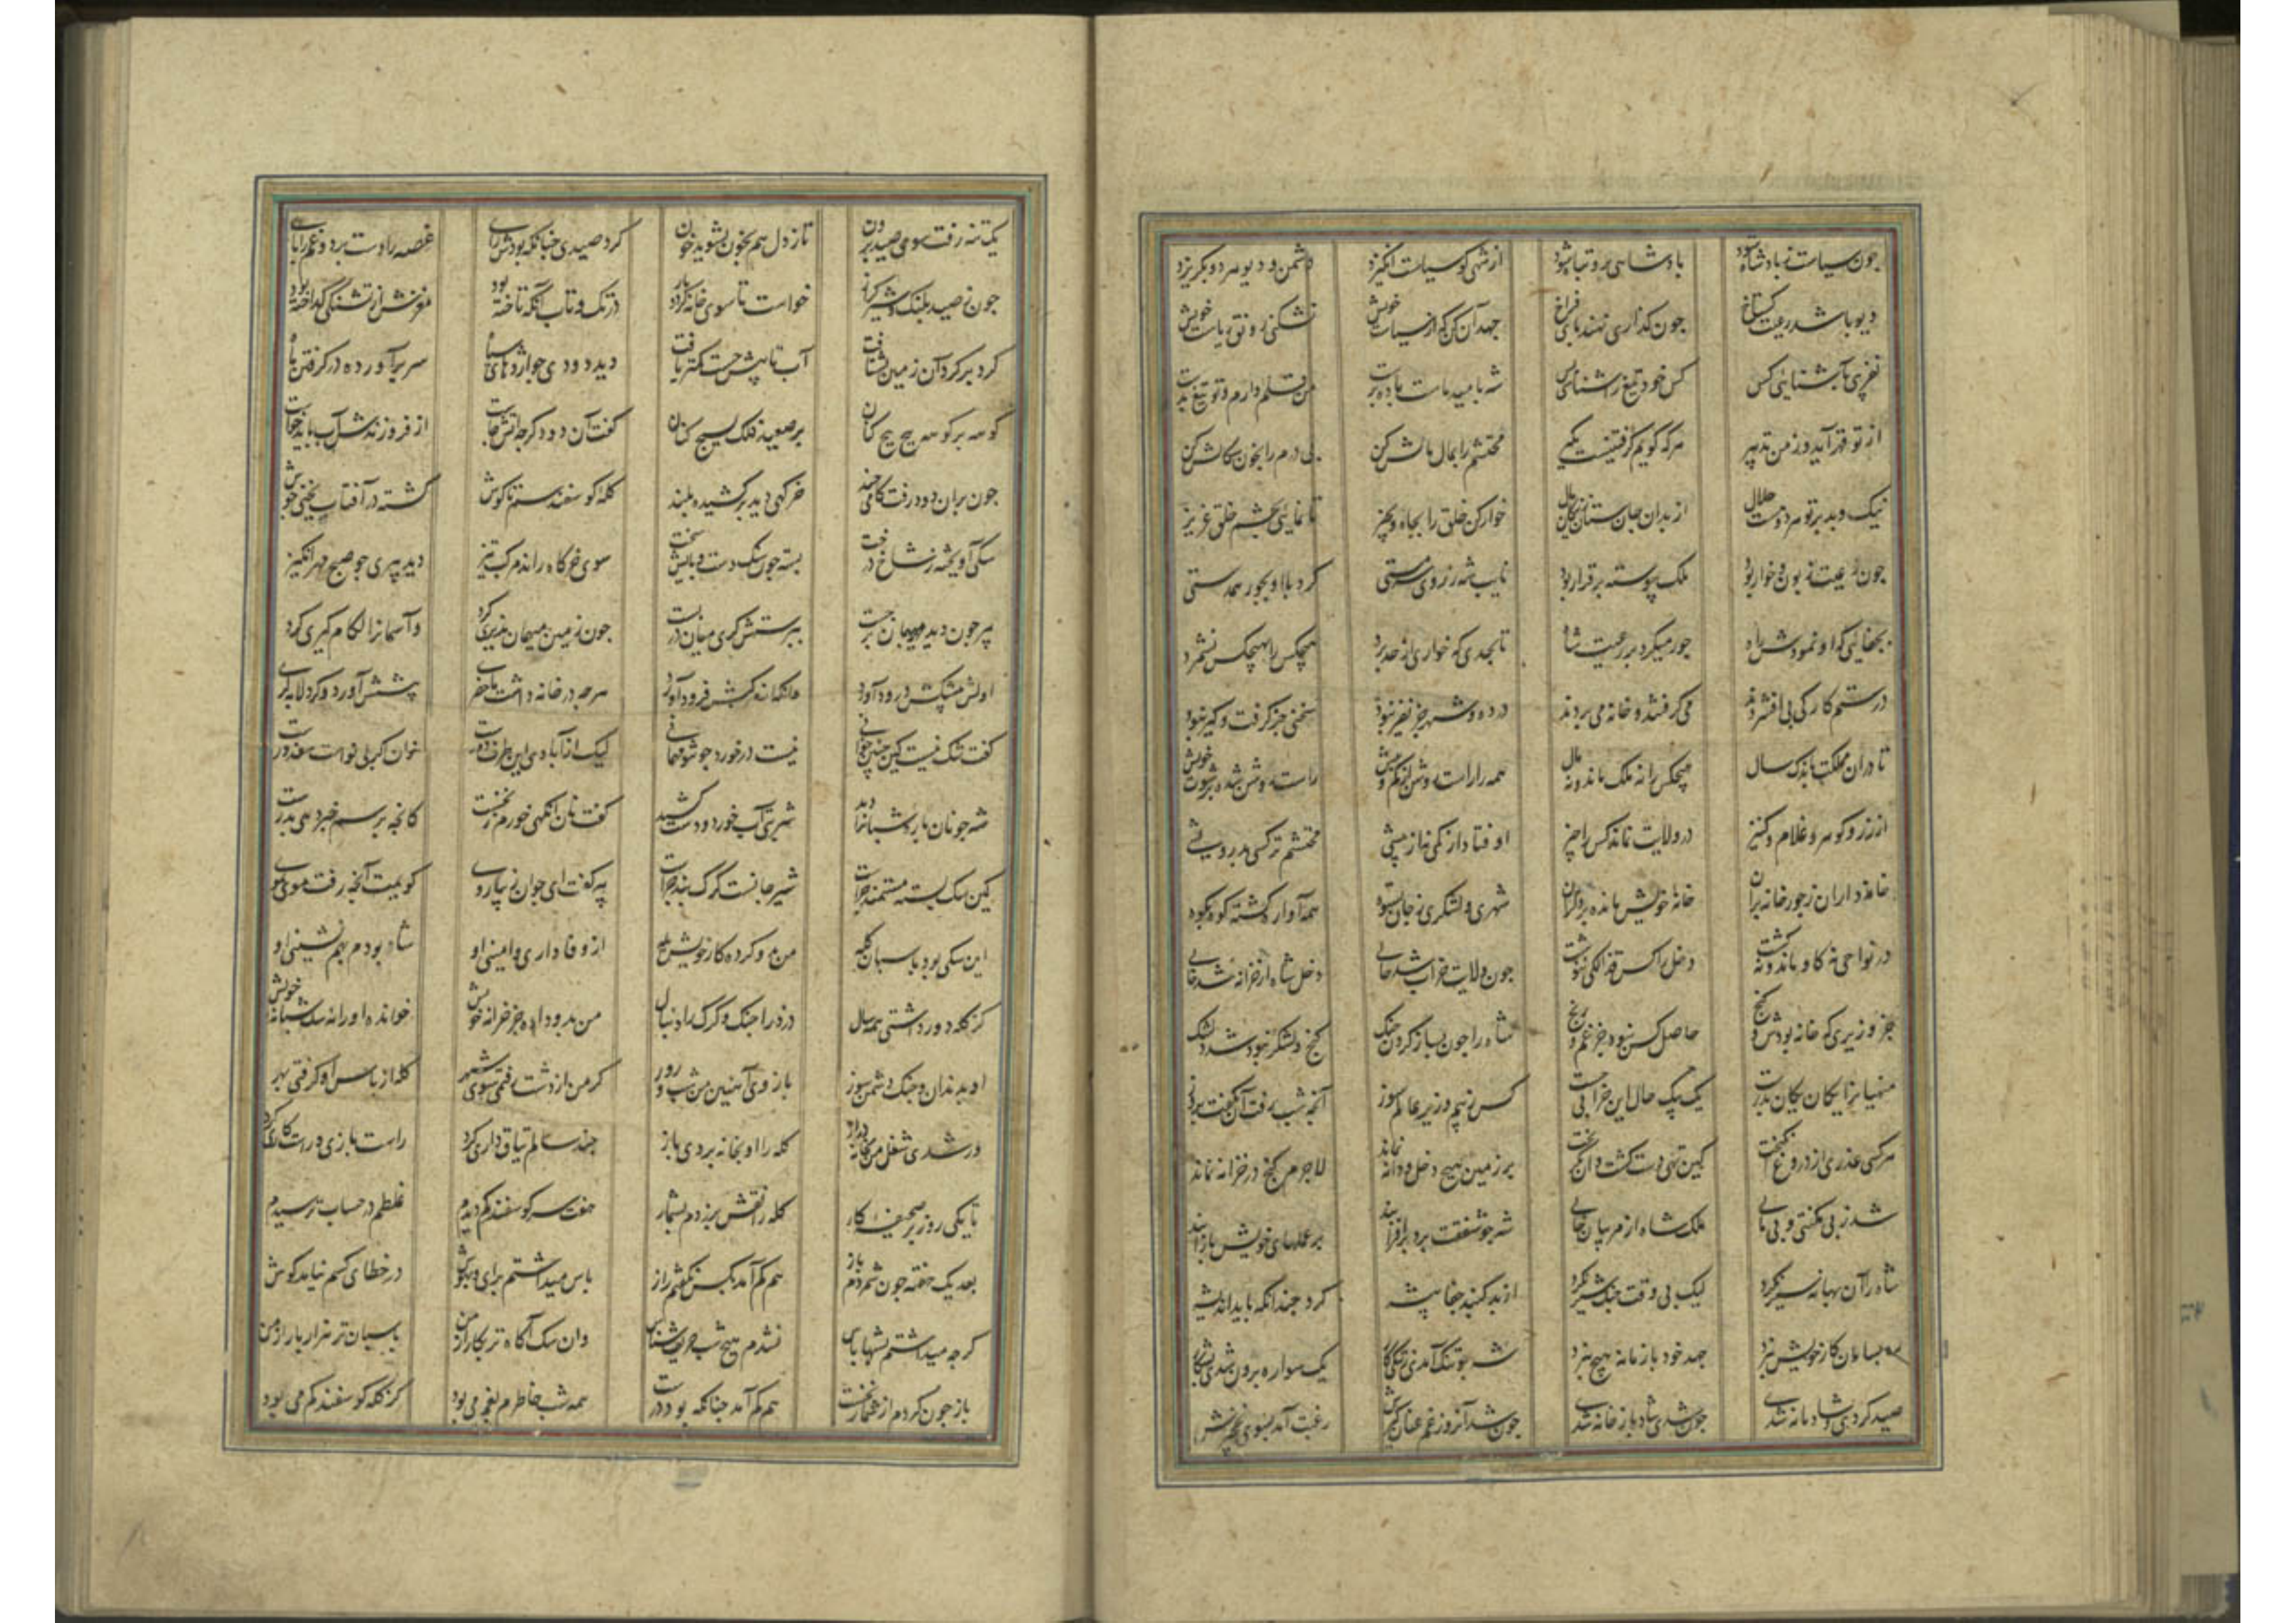 چون سیاست زبادشاه شود بادشاهی برو تباه شود ازشهی کو سیاست انکیزد دشمن و دیو هر دو بکریزد
دیو باشد رعیت کستاخ چون کذاری نهند بای فراخ جهد آن کن که از سیاست خویش نشکنی رونق ریاست خویش
نفریبی بآشنایی کس کس خود تیغ را شناسی بس شه بامید ماست باده برست من قلم دارم و تو تیغ بدست
از تو قهر آید و زمن تدبیر هرکه کویم کرفتنیست بکیر محتشم را بمال مالش کن بی درم را بخون سکالش کن
نیک و بد بر تو هر دو هست حلال از بدان جان ستان زنیکان مال خوارکن خلق را بجاه و بچیز تا نمایی بچشم خلق عزیز
چون رعیت زبون و خوار بود ملک پیوسته برقرار بود نایب شه زروی سرمستی کرد با او بجور همدستی
بجفایی که او نمودش راه جور میکرد بر رعیت شاه تا بحدی که خواری ازحد برد هیچکس را بهیچکس نشمرد
درستم کارکی بی افشردند می کرفتند و خانه می بردند در ده و شهر جز نفیر نبود سخنی جز کرفت و کیر نبود
تا دران مملکت باندک سال هیچکس را نه ملک ماند و نه مال همه را راست روشن از کم و بیش راست روشن شد برشوت خویش
از زر و کوهر و غلام و کنیز در ولایت نماند کس را چیز اوفتاد از کمی نه از بیشی محتشم ترکسی بدرویشی
خانه داران زجور خانه بران خانه خویش مانده بر دکران شهری و لشکری زجان بستوه همه آواره کشته کوه بکوه
در نواحی نه کاو ماند و نه کشت دخل را کس فذالکی ننوشت چون ولایت خراب شد حالی دخل شاه از خزانه شد خالی
جز وزیری که خانه بودش و کنج حاصل کس نبود جز غم و رنج شاه را چون بساز کردن جنک کنج و لشکر نبود شد دلتنک
منهیانرا یکان یکان بدرست یک بیک حال این خرابی جست کس زبیم وزیر عالم سوز آنچه شب رفت آن نکفت بروز
هرکسی عذری از دروغ انکیخت کین تهی دست کشت و آن بکریخت بر زمین هیچ دخل و دانه نماند لاجرم کنج در خزانه نماند
شد زبی مکنتی و بی مالی ملک شاه از مردمان خالی شه چو شفقت برد براافزایند برعملهای خویش بازآیند
شاه را آن بهانه سیر نکرد لیک بی وقت جنک شیر نکرد از بد کنبد جفا پیشه کرد چندانکه باید اندیشه
ره بسامان کار خویش نبرد جهد خود با زمانه هیچ نبرد شه چو تنک آمدی زتنکی کار یک سواره برون شدی بشکار
صید کردی و شادمانه شدی چون شدی شاد باز خانه شدی چون شد آنروز غم عنان کیرش رغبت آمد بسوی نخجیرش
یکتنه رفت سوی صید برون تا زدل هم بخون بشوید خون کرد صیدی چنانکه بودش رای غصه را دست برد و غم را پای
چون زصید پلنک و شیر و کراز خواست تا سوی خانه کردد باز درتک و تاب آنکه تاخته بود مغزش ازتشنکی کداخته بود
کرد برکرد آن زمین بشتافت آب تا بیش جست کمتر یافت دید دودی چو اژدهای سیاه سر برآورده درکرفتن ماه
کوهه برکوهه پیچ پیچ کنان برصعود فلک بسیچ کنان کفت آن دود کرچه آتش خاست از فروزنده ش آب باید خواست
چون بران دود رفت کامی چند خرکهی دید برکشیده بلند کله کوسفند سم تا کوش کشته در آفتاب یخنی جوش
سکی آویخته زشاخ درخت بسته چون سنک دست و پایش سخت سوی خرکاه راند مرکب تیز دید پیری چو صبح مهر انکیز
پیر چون دید میهمان برجست بپرستش کری میان دربست چون زمین میهمان پذیری کرد وآسمانرا لکام کیری کرد
اولش بیشکش درود آورد وانکهانی کش فرود آورد هرچه در خانه داشت ماحضری پیشش آورد و کرد لابه کری
کفت شک نیست کین چنین خوانی نیست درخورد چو تو مهمانی لیک از آبادی این طرف دورست خوان اکر بی نواست معذورست
شه چو نان پاره شبانرا دید شربتی آب خورد و دست کشید کفت نان آنکهی خورم زنخست کانچه پرسم خبر دهی بدرست
کین سک بسته مستمند چراست شیر خانست کرک بند چراست پیر کفت ای جوان زیبا روی کویمت آنچه رفت موی بموی
این سکی بود پاسبان کله من بدو کرده کار خویش یله از وفاداری و امینی او شاد بودم بهم نشینی او
کز کله دور داشتی همه سال دزد را چنک و کرک را دنبال من بدو داده جزو خزانه خویش خوانده او را نه سک شبانه خویش
او بدندان و چنک دشمن سوز بازوی آهنین من شب و روز کر من از دشت رفتمی سوی شهر کله از پاس او کرفتی بهر
ور شدی شغل من بخانه دراز کله را او بخانه بردی باز چند سالم یتاق داری کرد راست بازی و راست کاری کرد
تا یکی روز برصحیفه کار کله را نقش برزدم بشمار هفت سر کوسفند کم دیدم غلطم در حساب ترسیدم
بعد یک هفته چون شمردم باز هم کم آمد بکس نکفتم راز پاس میداشتم برای و بهوش در خطای کسم نیامد کوش
کرچه میداشتم بشبها پاس نشدم هیچ شب حریف شناس وان سک آکاه تر بکار از من پاسبان تر هزار بار از من
باز چون کردم از شمار نخست هم کم آمد چنانکه بود درست همه شب خاطرم بغم می بود کز کله کوسفند کم می بود